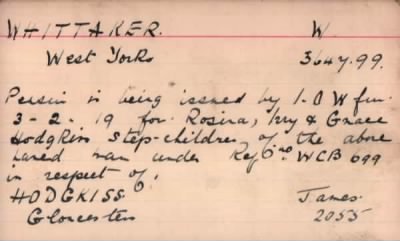 WHITTAKER. W
West Yorks 3647.99.
Persin is being issued by I.O.W fm.
3-2-19 for Rosina, Ivy & Grace
Hodgkiss step-children of the above
named man under Ref no WCB 699
in respect of.
HODGKISS. James.
Gloucesters 2055